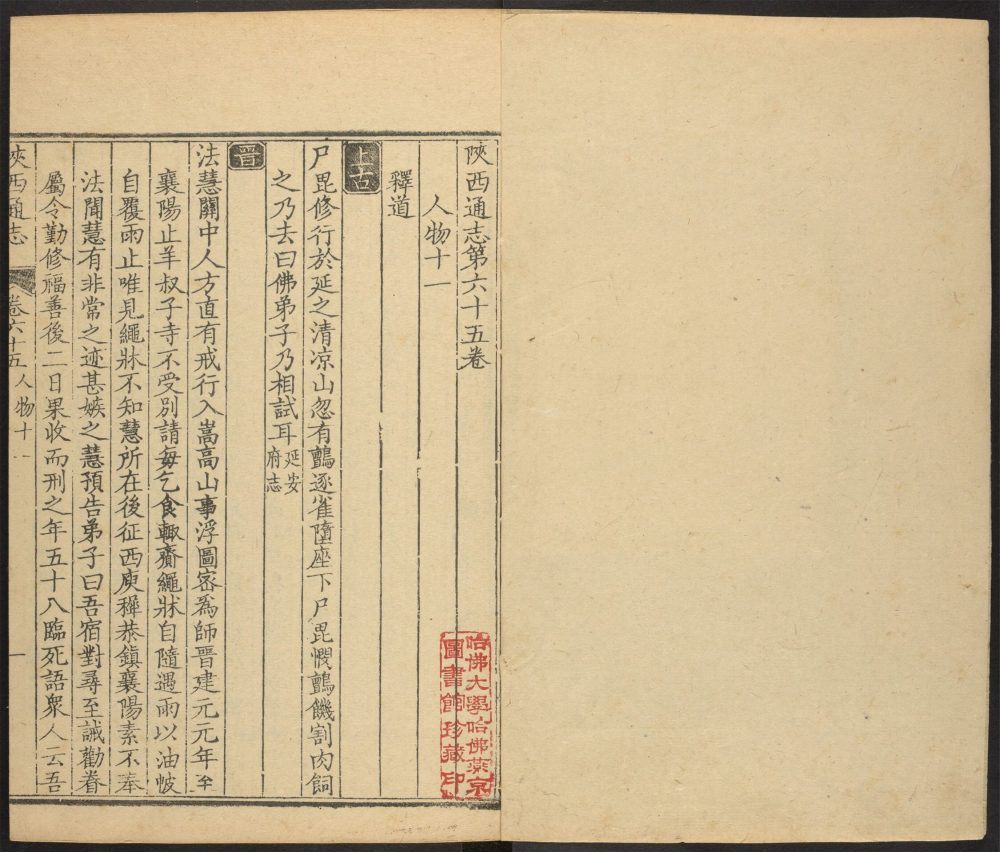 陝西通志第六十五卷
人物十一
釋道
上古
尸毘修行於延之清凉山忽有鸇逐雀墮座下尸毘憫鸇饑割肉飼
之乃去曰佛弟子乃相試耳延安
府志
晉
法慧關中人方直有戒行入嵩高山事浮圖宻爲師晉建元元年至
襄陽止羊叔子寺不受别請每乞食輒齎繩牀自隨遇雨以油帔
自覆雨止唯見繩牀不知慧所在後征西庾穉恭鎮襄陽素不奉
法聞慧有非常之迹甚嫉之慧預告弟子曰吾宿對尋至誡勸眷
屬令勤修福善後二日果收而刑之年五十八臨死語衆人云吾
陝西通志
卷六十五人物十一
一
哈佛大學哈佛燕京
圖書館珍藏印